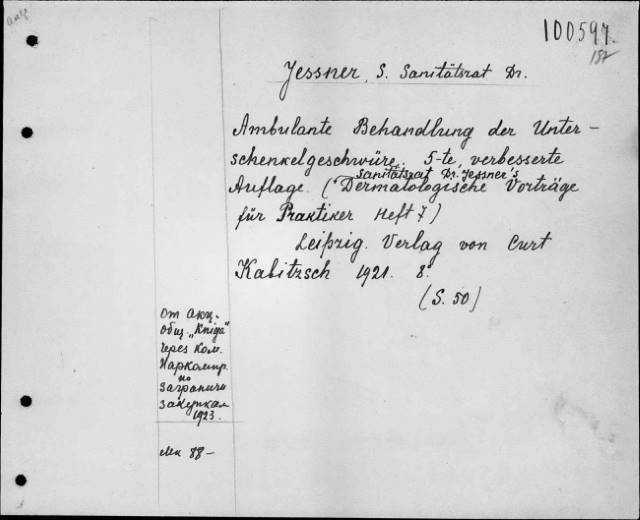 100597.
187
Jessner, S. Sanitätsrat Dr.
Ambulante Behandlung der Unter-
schenkelgeschwüre. 5-te, verbesserte
Sanitätsrat Dr. Jessner's
Auflage. (Dermatologische Vorträge
für Praktiker Heft 7)
Leipzig. Verlag von Curt
Kabitzsch 1921. 8°.
(S. 50)
От Акц.
общ. "Kniga"
через Ком.
Наркомпр.
по
загранич
закупкам
1923.
Мк 88-